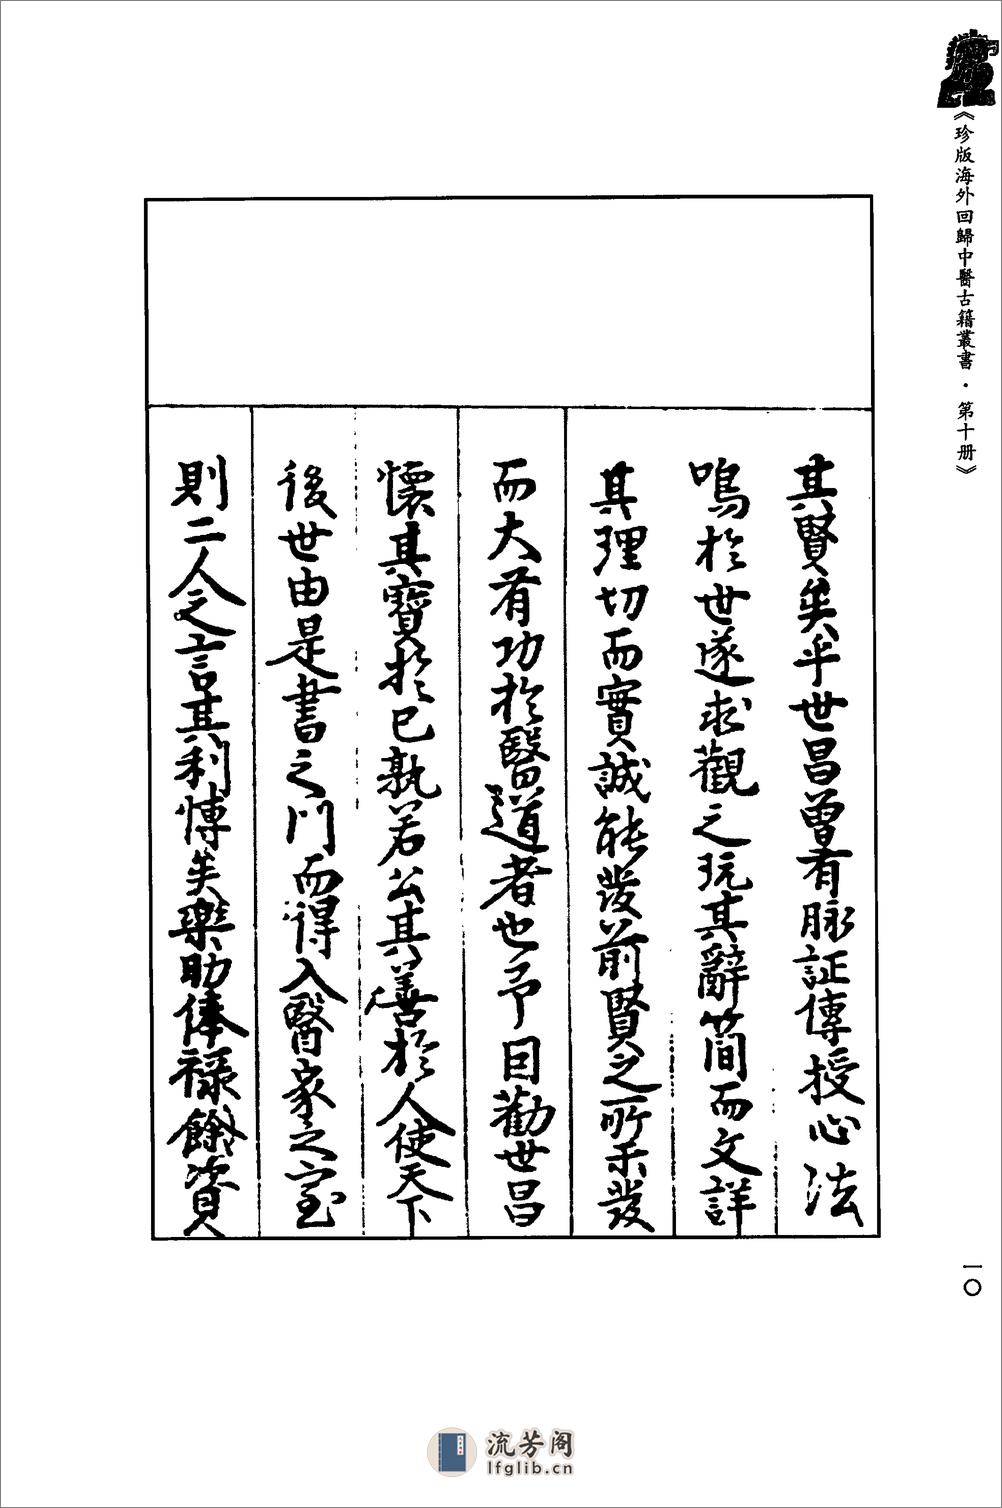 《珍版海外回歸中醫古籍叢書·第十册》
其賢矣乎世昌曾有脉証傳授心法
鳴於世遂求觀之玩其辭簡而文詳
其理切而實誠能發前賢之所未發
而大有功於醫道者也予因勸世昌
懷其寶於己孰若公其善於人使天下
後世由是書之門而得入醫家之室
則二人之言其利博矣樂助俸祿餘資人
一〇
流芳阁
lfglib.cn